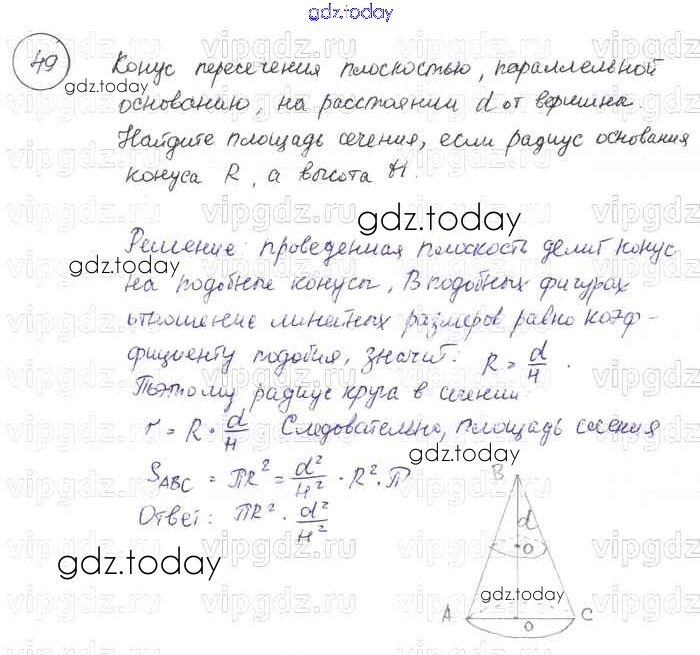 gdz.today
49
Конус пересечения плоскостью, параллельной
gdz.today
основанию, на расстоянии d от вершины.
Найдите площадь сечения, если радиус основания
конуса R, а высота H.
gdz.today
Решение: проведенная плоскость делит конус
gdz.today
на подобные конусы, В подобных фигурах
отношение линейных размеров равно коэф-
фициенту подобия, значит: R = d/H.
Поэтому радиус круга в сечении:
r = R · d/H Следовательно, площадь сечения
gdz.today
S_ABC = ПR² = d²/H² · R² · П
Ответ: ПR² · d²/H²
gdz.today
B
d
O
gdz.today
A O C